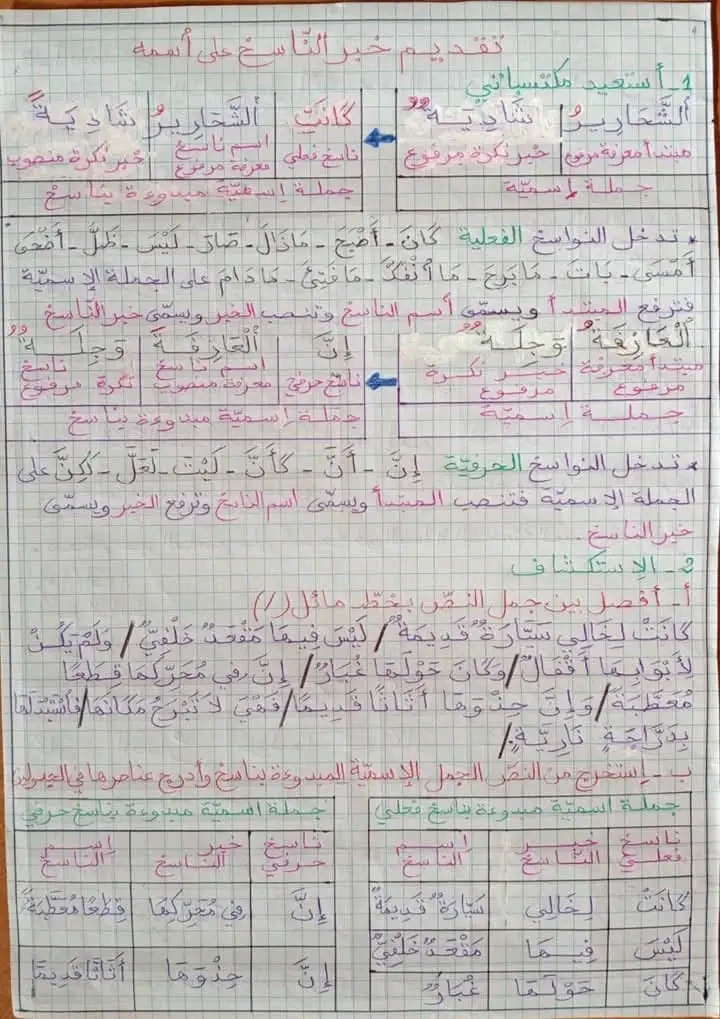 تقديم خبر النّاسخ على اسمه
1 - أستعيد مكتسباتي
الشَّحَارِيرُ شَادِيَةٌ
كَانَتِ الشَّحَارِيرُ شَادِيَةً
مبتدأ معرفة مرفوع خبر نكرة مرفوع
ناسخ فعلي اسم ناسخ معرفة مرفوع خبر نكرة منصوب
جملة إسميّة
جملة إسميّة مبدوءة بناسخ
* تدخل النواسخ الفعلية كَانَ - أَصْبَحَ - مَازَالَ - صَارَ - لَيْسَ - ظَلَّ - أَضْحَى
أَمْسَى - بَاتَ - مَا بَرِحَ - مَا انْفَكَّ - مَا فَتِئَ - مَا دَامَ على الجملة الإسميّة
فترفع المبتدأ ويسمّى اسم الناسخ وتنصب الخبر ويسمّى خبر النّاسخ
الْعَازِفَةُ وَجِلَةٌ
إِنَّ الْعَازِفَةَ وَجِلَةٌ
مبتدأ معرفة مرفوع خبر نكرة مرفوع
ناسخ حرفي اسم ناسخ معرفة منصوب ناسخ نكرة مرفوع
جملة إسميّة
جملة إسميّة مبدوءة بناسخ
* تدخل النواسخ الحرفيّة إِنَّ - أَنَّ - كَأَنَّ - لَيْتَ - لَعَلَّ - لَكِنَّ على
الجملة الإسميّة فتنصب المبتدأ ويسمّى اسم الناسخ وترفع الخبر ويسمّى
خبر الناسخ.
2 - الإستكشاف
أ - أفصل بين جمل النصّ بخطّ مائل (/)
كَانَتْ لِخَالِي سَيَّارَةٌ قَدِيمَةٌ / لَيْسَ فِيهَا مَقْعَدٌ خَلْفِيٌّ / وَلَمْ يَكُنْ
لِأَبْوَابِهَا أَقْفَالٌ / وَكَانَ حَوْلَهَا غُبَارٌ / إِنَّ فِي مُحَرِّكِهَا قِطَعًا
مُعَطَّبَةً / وَإِنَّ حِذْوَهَا أَثَاثًا قَدِيمًا / فَهْيَ لَا تَبْرَحُ مَكَانَهَا / فَاسْتَبْدَلَهَا
بِدَرَّاجَةٍ نَارِيَّةٍ /.
ب - إستخرج من النصّ الجمل الإسميّة المبدوءة بناسخ وأدرج عناصرها في الجدول
جملة اسميّة مبدوءة بناسخ فعلي
ناسخ فعلي خبر النّاسخ إسم النّاسخ
كَانَتْ لِخَالِي سَيَّارَةٌ قَدِيمَةٌ
لَيْسَ فِيهَا مَقْعَدٌ خَلْفِيٌّ
كَانَ حَوْلَهَا غُبَارٌ
جملة اسميّة مبدوءة بناسخ حرفي
ناسخ حرفي خبر النّاسخ إسم النّاسخ
إِنَّ فِي مُحَرِّكِهَا قِطَعًا مُعَطَّبَةً
إِنَّ حِذْوَهَا أَثَاثًا قَدِيمًا